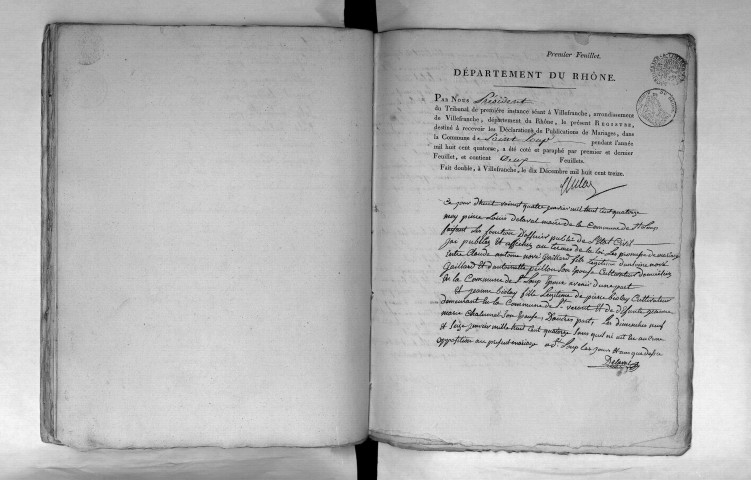 Premier Feuillet.
DÉPARTEMENT DU RHÔNE.
PAR NOUS Président
du Tribunal de première instance séant à Villefranche, arrondissement
de Villefranche, département du Rhône, le présent REGISTRE,
destiné à recevoir les Déclarations de Publications de Mariages, dans
la Commune de Saint Loup pendant l'année
mil huit cent quatorze, a été coté et paraphé par premier et dernier
Feuillet, et contient deux Feuillets.
Fait double, à Villefranche, le dix Décembre mil huit cent treize.
ce jour d'huit vaint quatre janvier mil huit cent quatorze
moy pierre Louis Delaval maire de la Commune de St Loup
faisant les fonction D'officier public de l'état Civil
jai publiez et affichez au termes de la loi les promesse de mariage
entre Claude antoine noir Gaillard fils légitime d'antoine noir
Gaillard et d'antoinette son Epouse Cultivateur domiciliez
en la Commune de St Loup Epoux avenir d'une part
et jeanne bislay fille Legitime de pierre bislay Cultivateur
demeurant en la Commune de St verant et de défunte jeanne
marie son Epouse, D'autres part, les dimanches neuf
et seize janvier mille huit cent quatorze sans qu'il ni ait eu aucune
opposition au présent mariage a St Loup les jour et an que dessus
Delaval